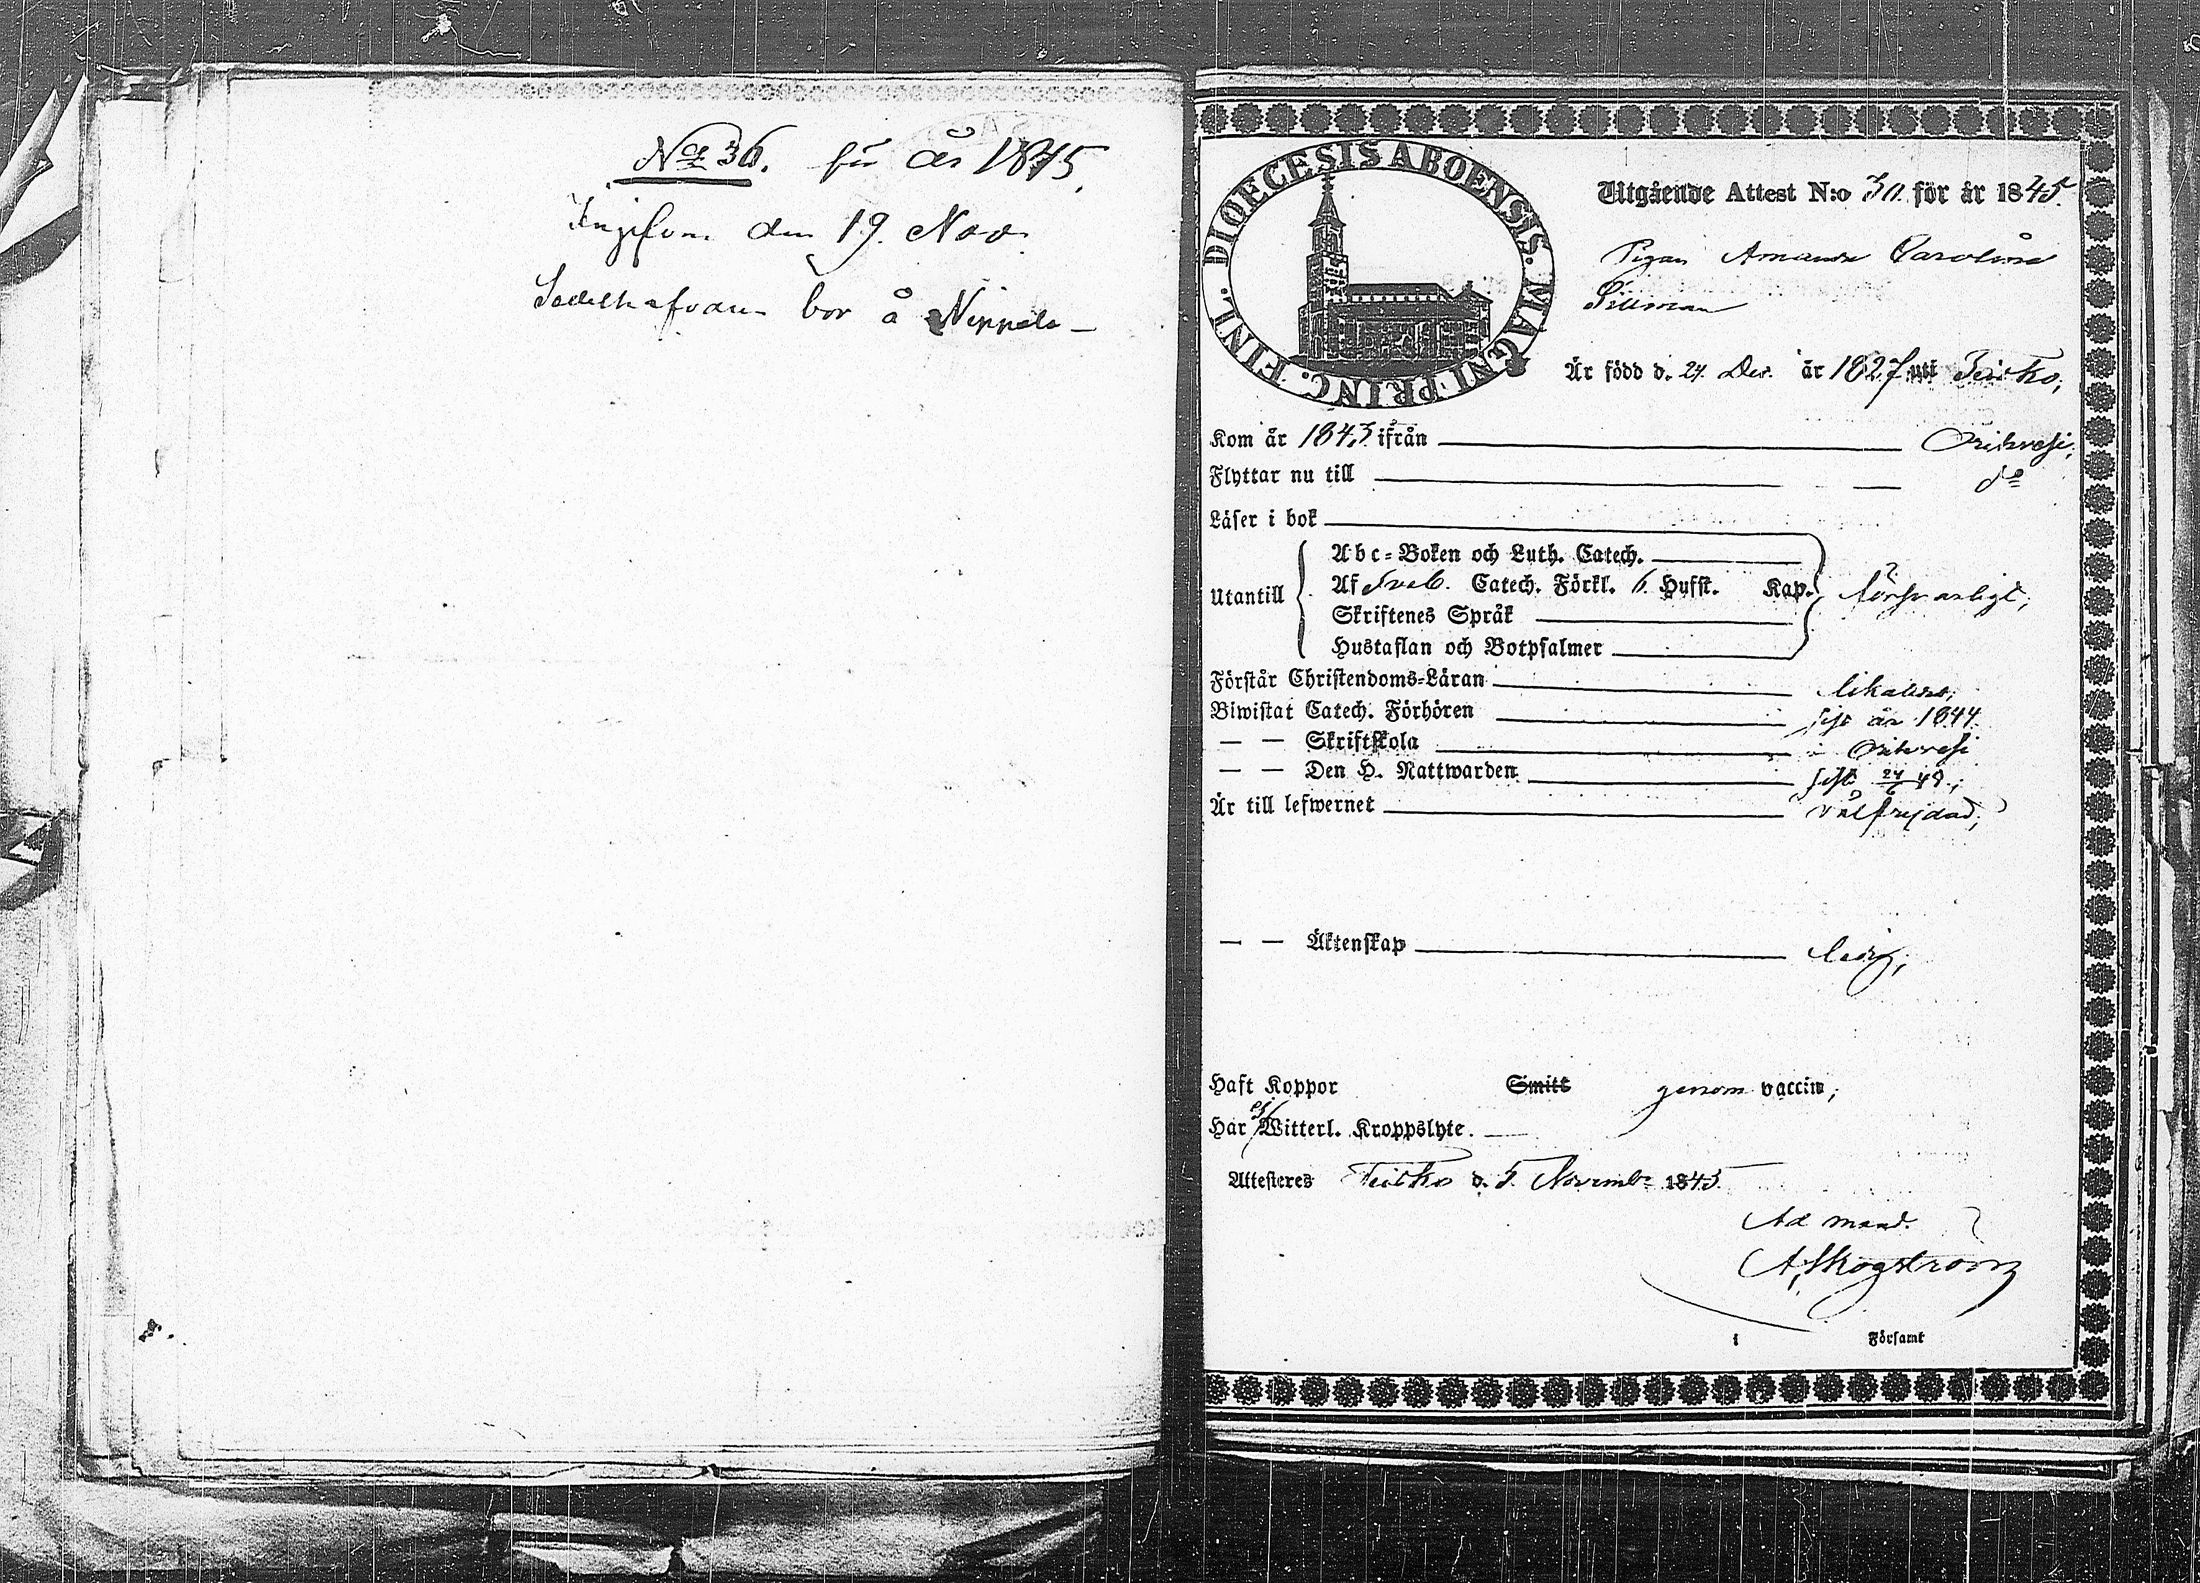 No 36. för år 1845.
Ingifven den 19. Nov.
Sedelhafvaren bor å
DIOECESIS ABOENSIS. MAGNI PRINC. FINL.
Utgående Attest N:o 30. för år 1845.
Pigan Amanda Carolina
Är född d. 24 Dec. år 1827 uti Teisko,
Kom år 1843 ifrån Orihvesi,
Flyttar nu till do
Läser i bok
Abc-Boken och Luth. Catech.
Utantill Af Sveb. Catech. Förkl. 6 Hufst. Kap. försvarligt,
Skriftenes Språk
Hustaflan och Botpsalmer
Förstår Christendoms-Läran likaledes,
Biwistat Catech. Förhören sist år 1844.
— — Skriftskola i Orihvesi
— — Den H. Nattwarden sist
Är till lefwernet välfrejdad,
— — Äktenskap ledig,
Haft Koppor Smitt genom vaccin,
Har ej Witterl. Kroppslyte. —
Attesteres Teisko d. 5. Novemb. 1845
Ad mand.
A. Skogström
i Församl